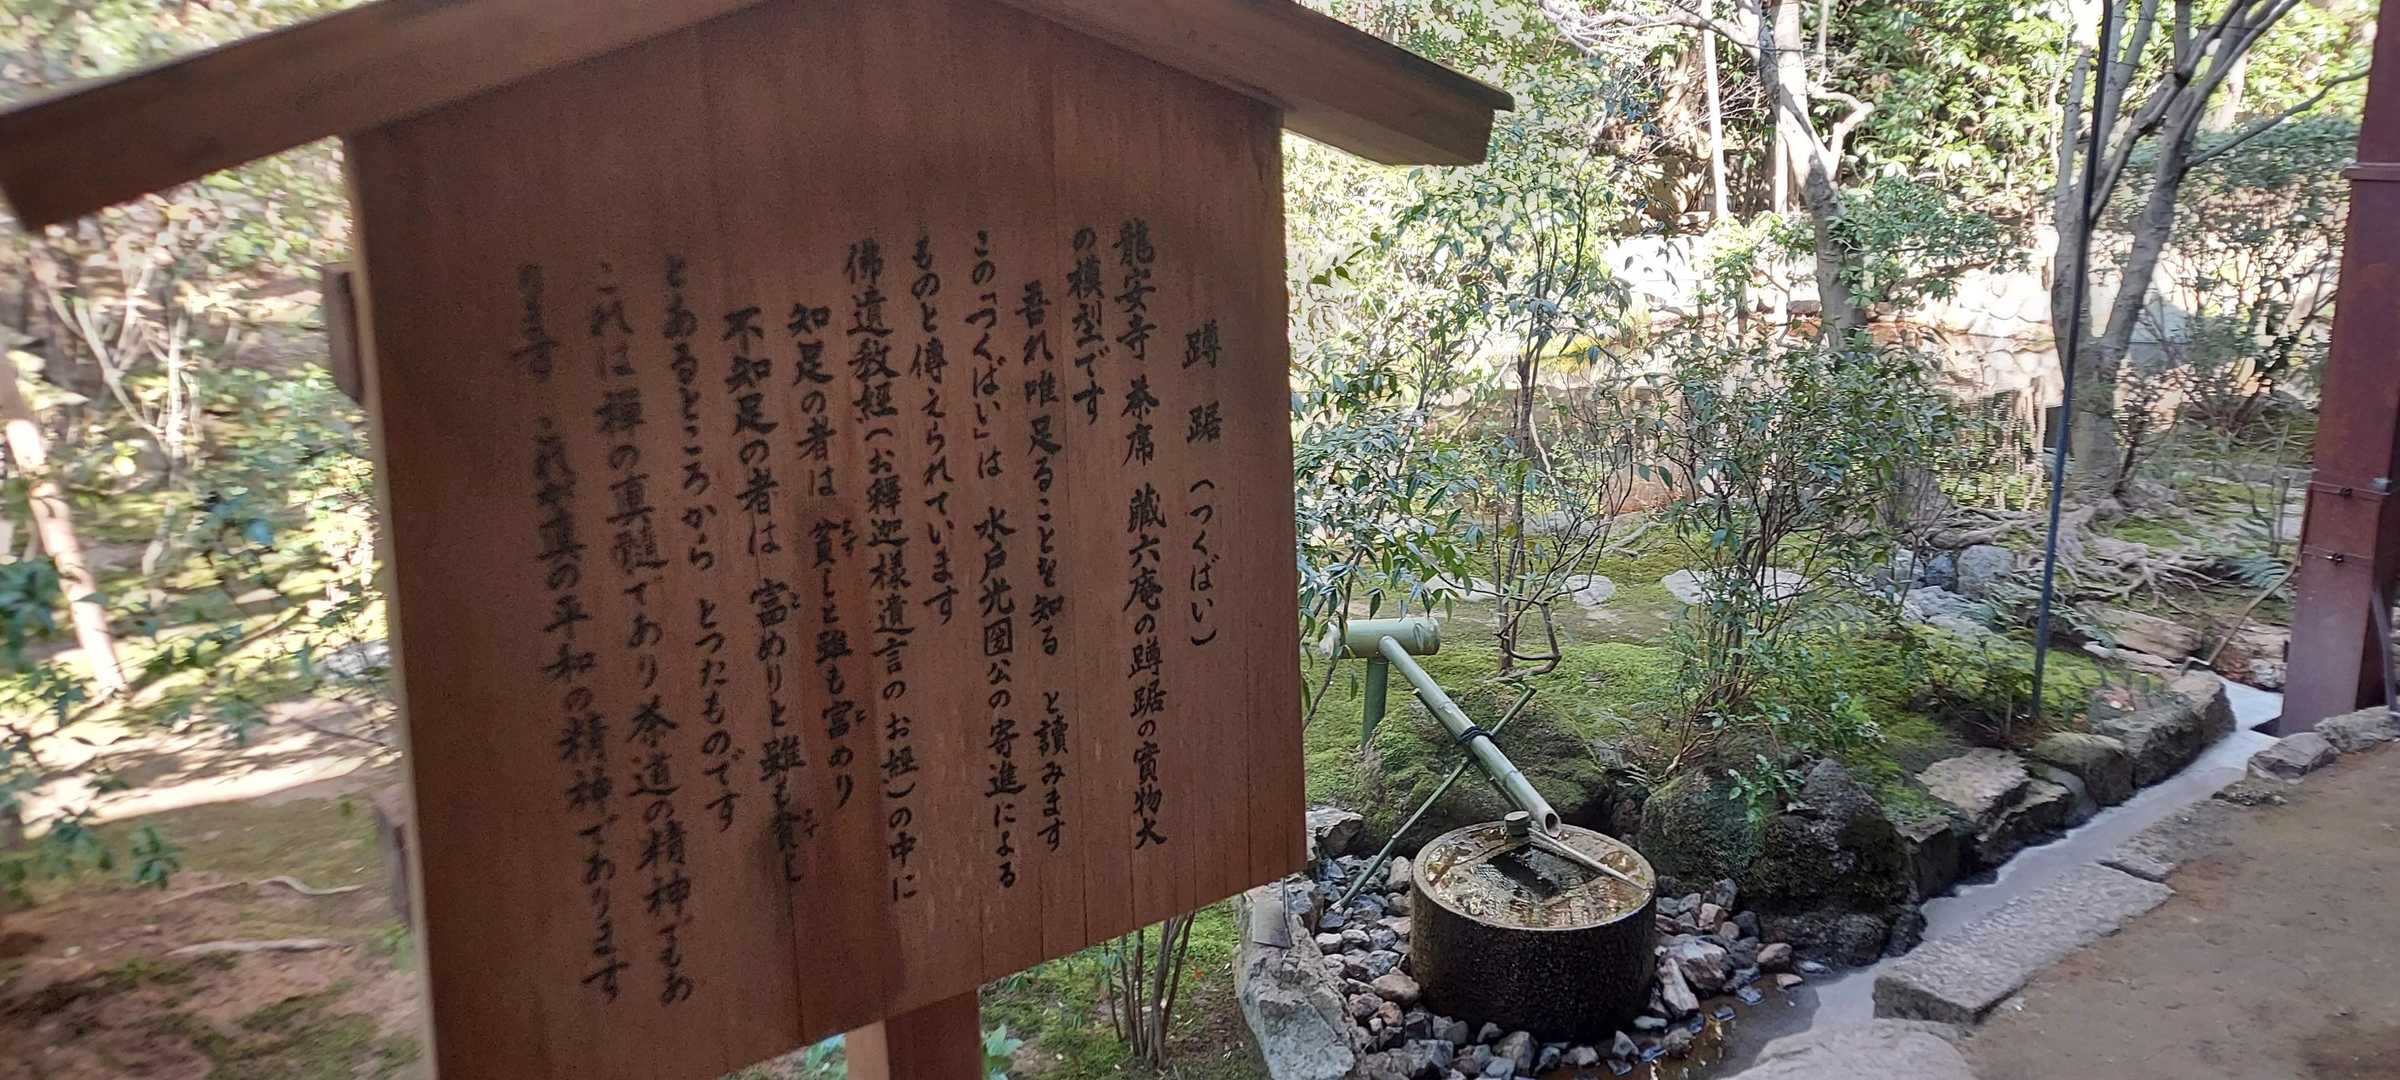 蹲踞(つくばい)
龍安寺 茶席 蔵六庵の蹲踞の實物大
の模型です
吾れ唯足ることを知る と讀みます
この「つくばい」は 水戸光圀公の寄進による
ものと傳えられています
佛遺教経(お釋迦様遺言のお経)の中に
知足の者は 貧しと雖も富めり
不知足の者は 富めりと雖も貧し
とあるところから とつたものです
これは禅の真髄であり茶道の精神でもあ
ります これが真の平和の精神であります